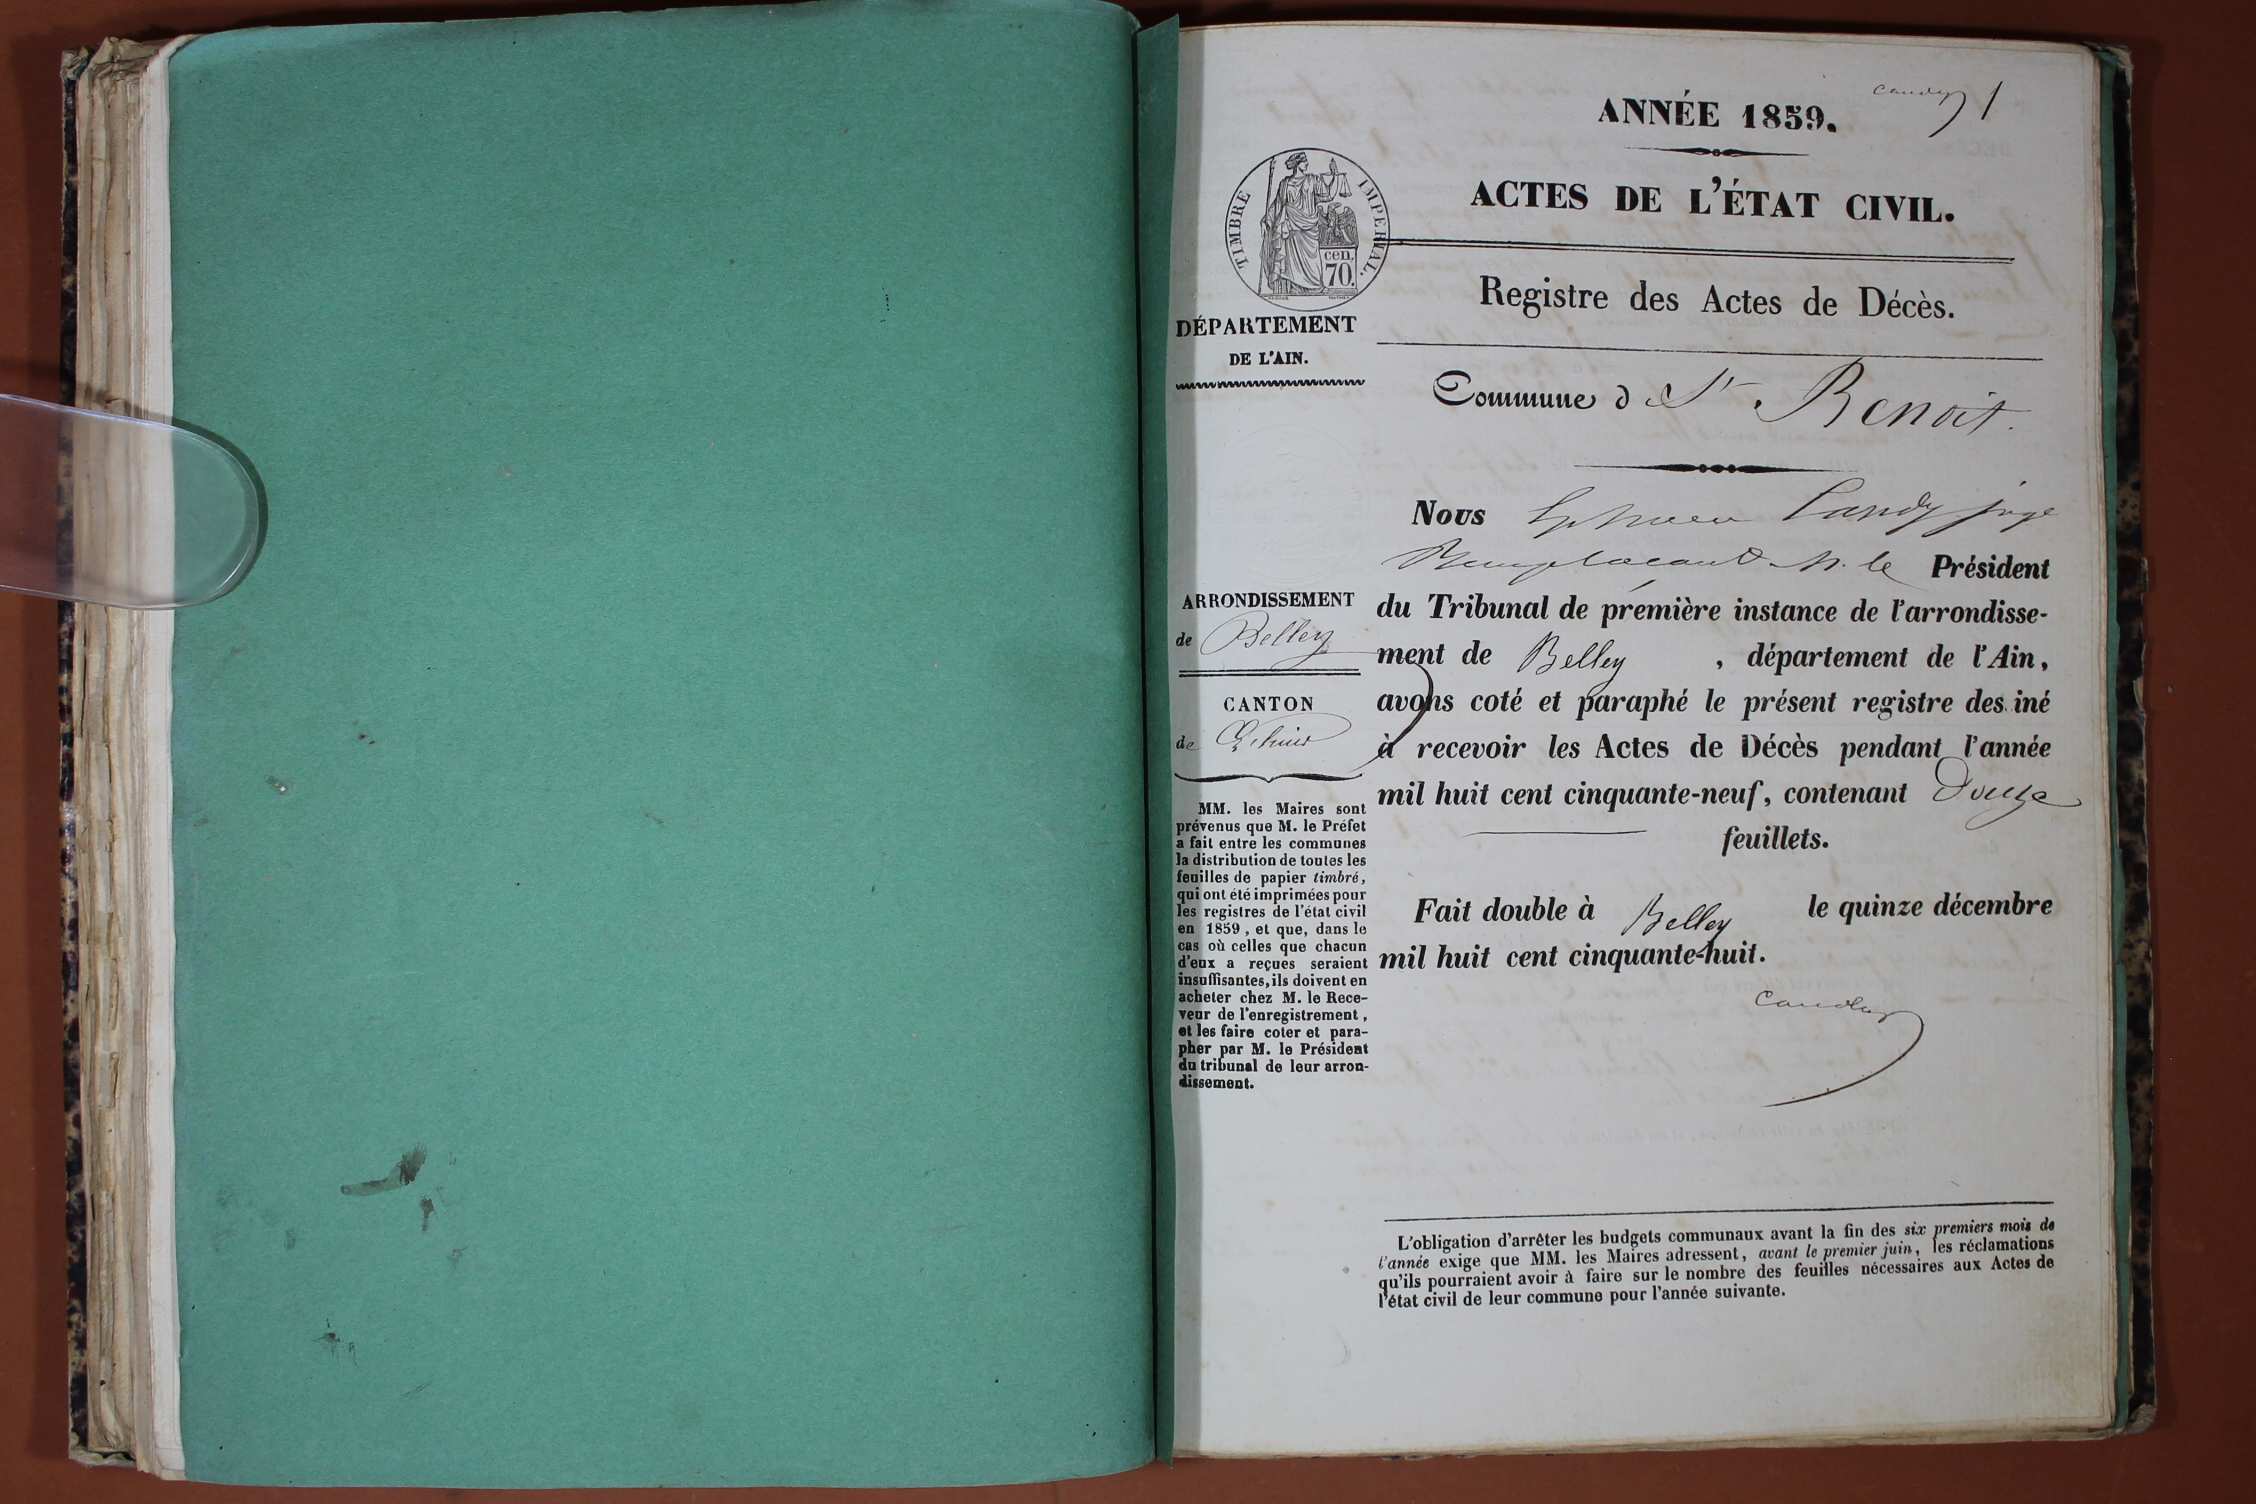 Candy 1
ANNÉE 1859.
ACTES DE L'ÉTAT CIVIL.
TIMBRE IMPERIAL.
cen.
70.
Registre des Actes de Décès.
DÉPARTEMENT
DE L'AIN.
Commune d St. Benoit.
Nous Candy juge
Remplaçant M. le Président
du Tribunal de première instance de l'arrondisse-
ment de Belley , département de l'Ain,
avons coté et paraphé le présent registre desiné
à recevoir les Actes de Décès pendant l'année
mil huit cent cinquante-neuf, contenant Douze
feuillets.
Fait double à Belley le quinze décembre
mil huit cent cinquante-huit.
Candy
ARRONDISSEMENT
de Belley
CANTON
de
MM. les Maires sont
prévenus que M. le Préfet
a fait entre les communes
la distribution de toutes les
feuilles de papier timbré,
qui ont été imprimées pour
les registres de l'état civil
en 1859, et que, dans le
cas où celles que chacun
d'eux a reçues seraient
insuffisantes, ils doivent en
acheter chez M. le Rece-
veur de l'enregistrement,
et les faire coter et para-
pher par M. le Président
du tribunal de leur arron-
dissement.
L'obligation d'arrêter les budgets communaux avant la fin des six premiers mois de
l'année exige que MM. les Maires adressent, avant le premier juin, les réclamations
qu'ils pourraient avoir à faire sur le nombre des feuilles nécessaires aux Actes de
l'état civil de leur commune pour l'année suivante.